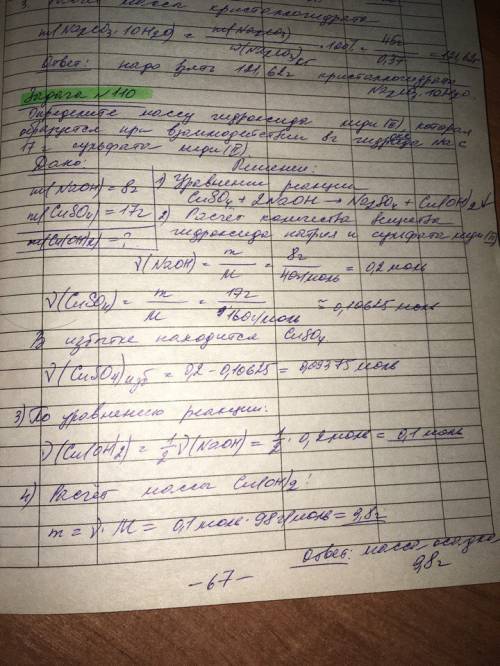 m(Na₂CO₃·10H₂O) = m(Na₂CO₃) / ·100% = 45г / 0,37 = 121,62г
Ответ: надо взять 121,62г кристаллогидрата
Na₂CO₃·10H₂O
Задача №110
Определите массу гидроксида меди (II) которая
образуется при взаимодействии 8г гидроксида Na с
17 г сульфата меди (II).
Дано: Решение:
m(NaOH) = 8г 1) Уравнение реакции
CuSO₄ + 2NaOH → Na₂SO₄ + Cu(OH)₂↓
m(CuSO₄) = 17г 2) Расчёт количества вещества
m(Cu(OH)₂) - ? гидроксида натрия и сульфата меди (II)
ν(NaOH) = m/M = 8г / 40г/моль = 0,2 моль
ν(CuSO₄) = m/M = 17г / 160г/моль = 0,10625 моль
В избытке находится CuSO₄
ν(CuSO₄)изб = 0,2 - 0,10625 = 0,09375 моль
3) По уравнению реакции:
ν(Cu(OH)₂) = 1/2 ν(NaOH) = 1/2 · 0,2 моль = 0,1 моль
4) Расчёт массы Cu(OH)₂:
m = ν · M = 0,1 моль · 98г/моль = 9,8г
Ответ: масса осадка
9,8г
-67-